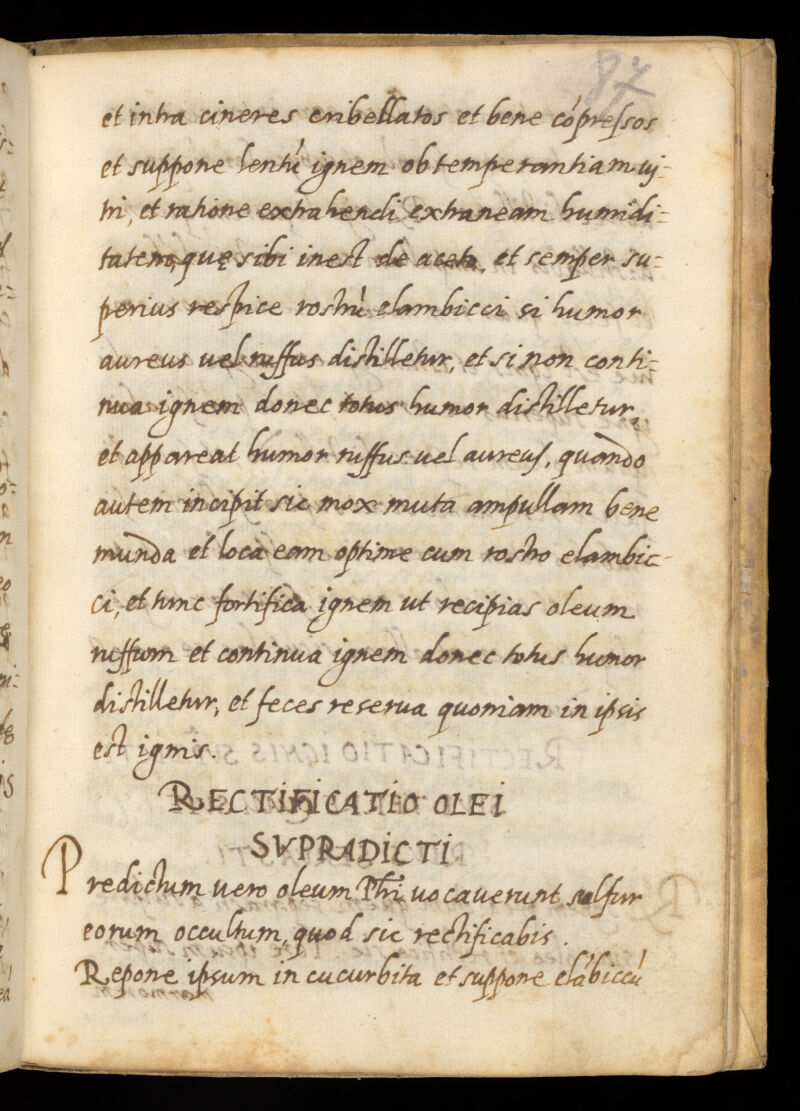 87
et intra cineres cribellatos et bene cópressos
et suppone lentú ignem ob temperantiam vi-
tri, et ratione extrahendi extraneam humidi-
tatem, quę sibi inest de aceto, et semper su-
perius respice rostrú elambicci si humor
aureus vel ruffus distilletur, et si non conti-
nua ignem donec totus humor distilletur,
et appareat humor ruffus vel aureus, quando
autem incipit sic mox muta ampullam bene
munda et loca eam optime cum rostro elambic-
ci, et tunc fortifica ignem ut recipias oleum
ruffum et continua ignem donec totus humor
distilletur, et feces reserva quoniam in ipsis
est ignis.
RECTIFICATIO OLEI
SVPRADICTI
Predictum vero oleum Phi vocaverunt sulfur
eorum occultum, quod sic rectificabis.
Repone ipsum in cucurbita et suppone elábiccú